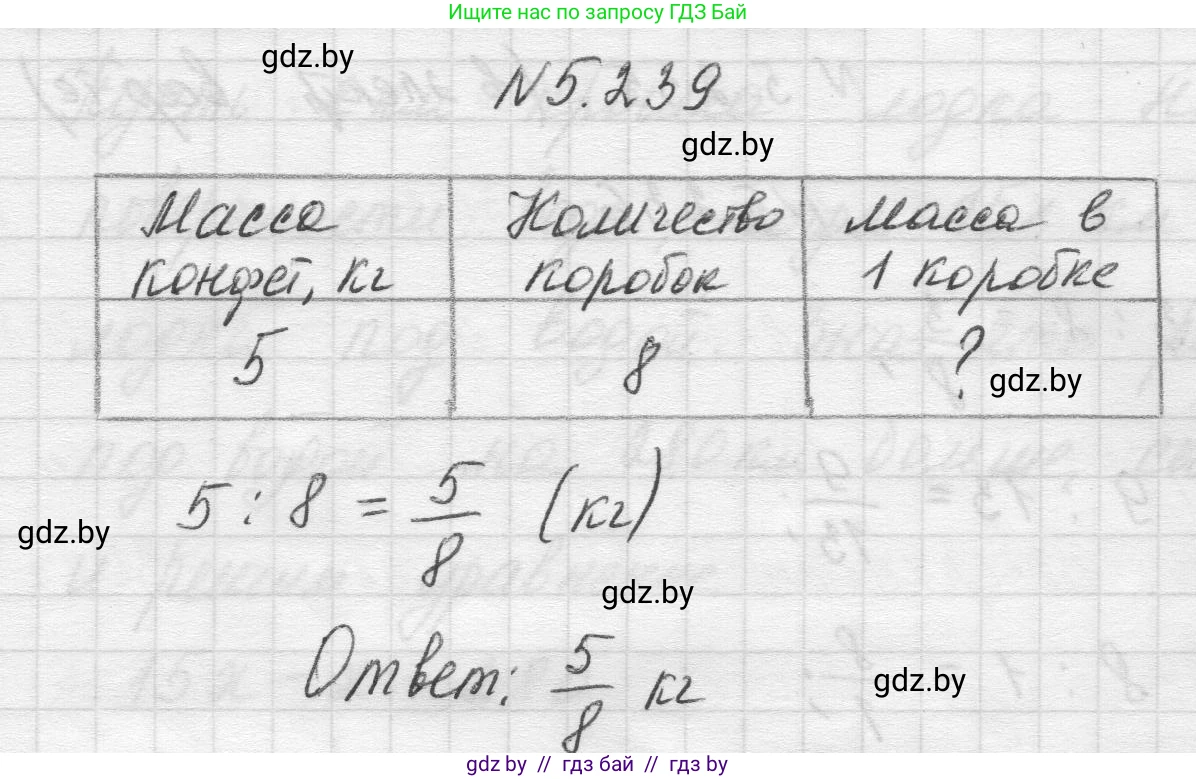 Ищите нас по запросу ГДЗ Бай
gdz.by
N 5.239
gdz.by
Масса конфет, кг | Количество коробок | Масса в 1 коробке
5 | 8 | ?
gdz.by
5 : 8 = 5/8 (кг)
gdz.by
gdz.by
Ответ: 5/8 кг
gdz.by
gdz.by // гдз бай // гдз by